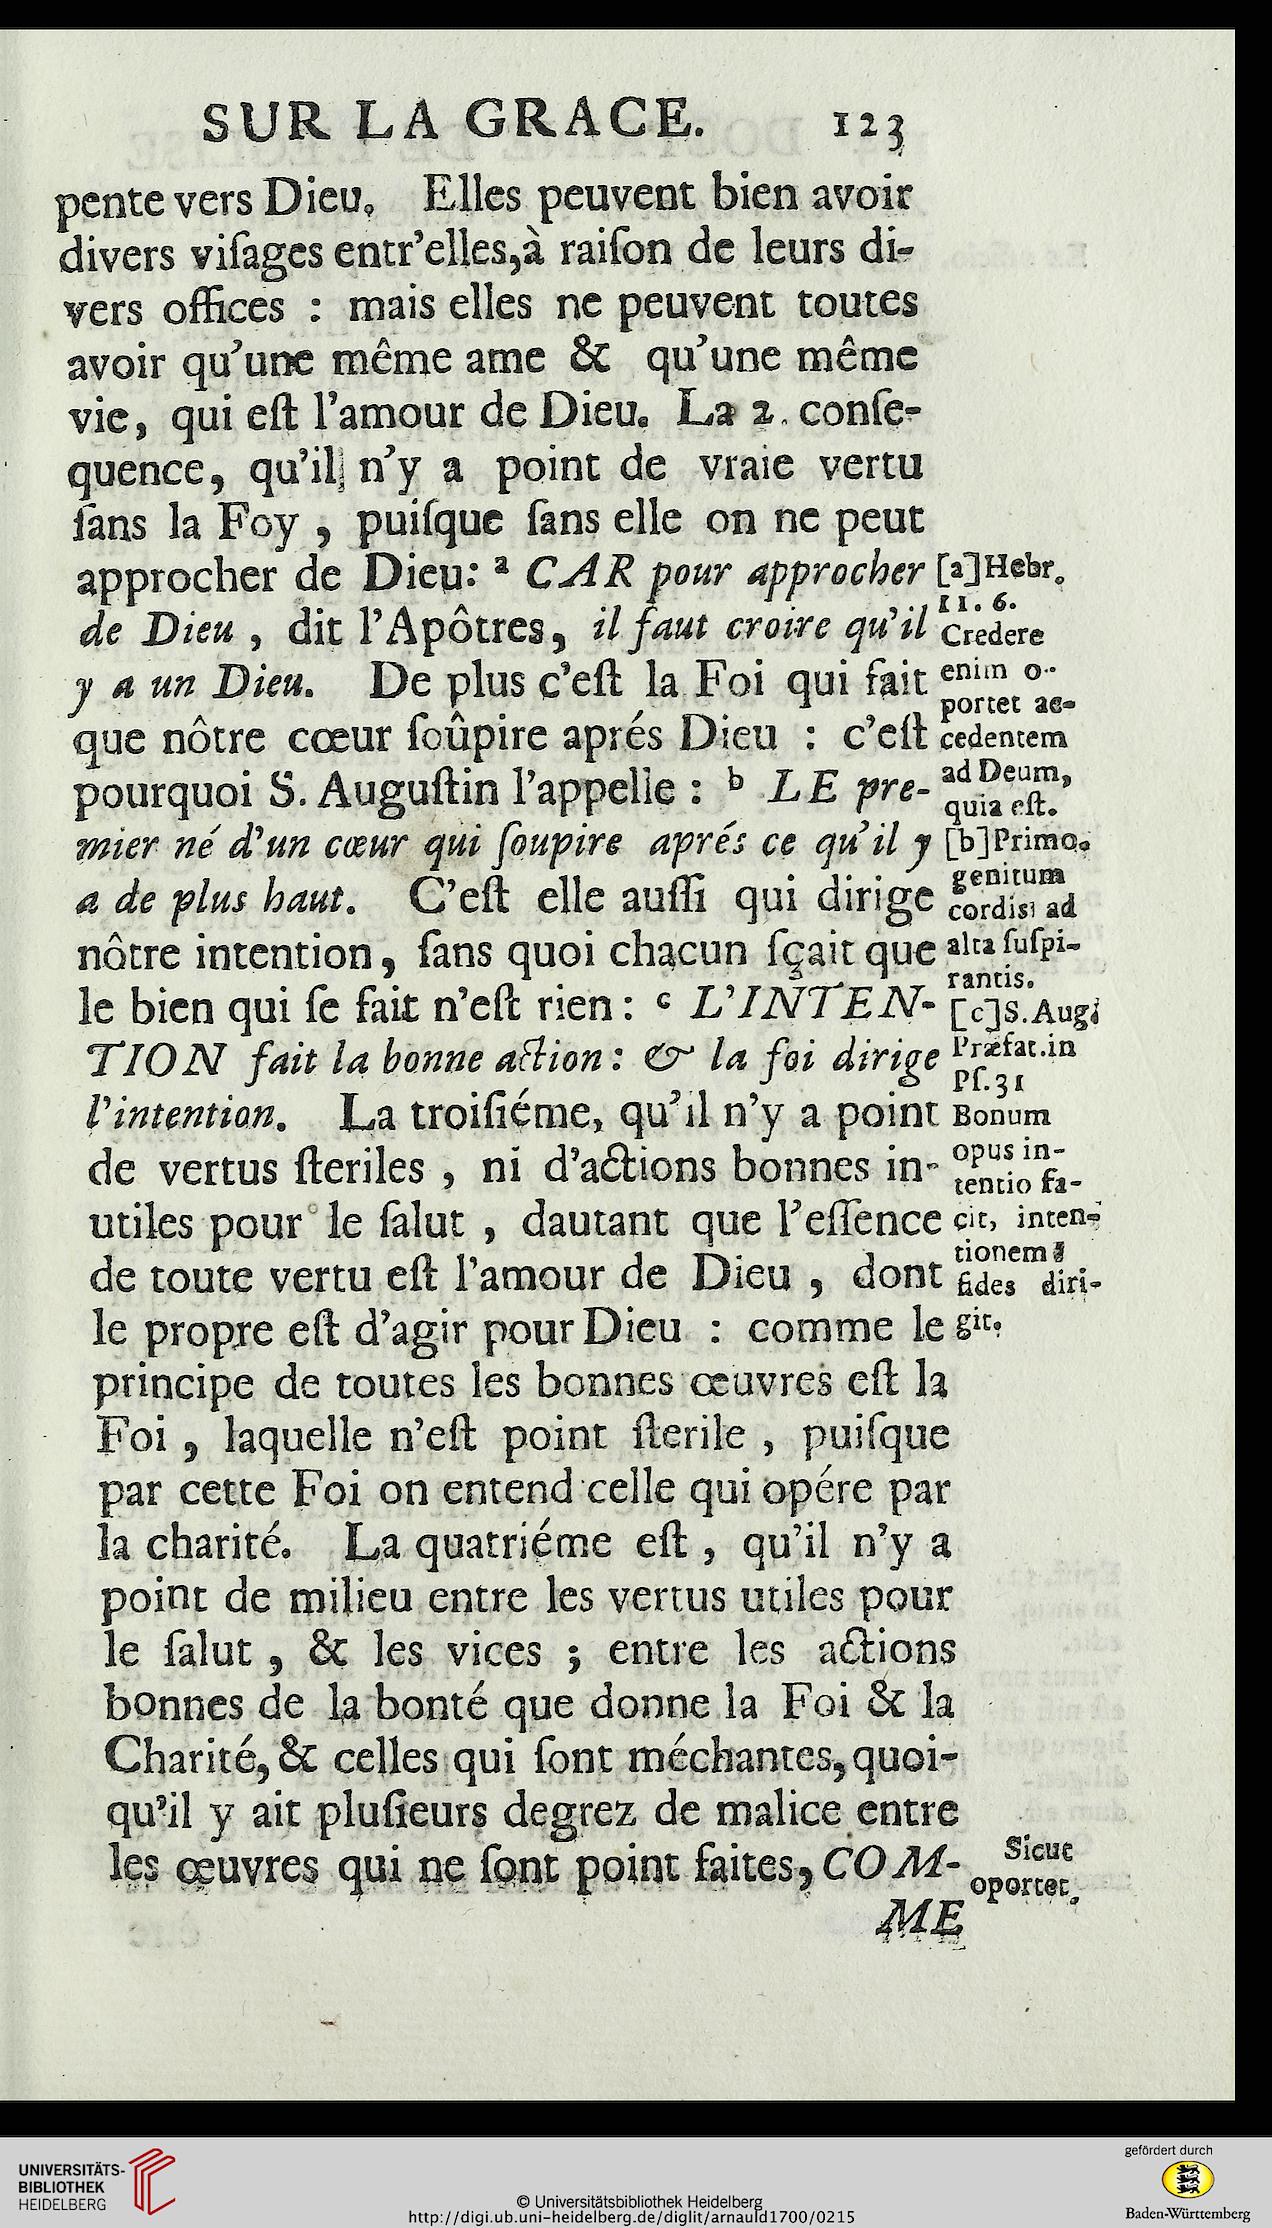 SUR LA GRACE. 123
pente vers Dieu. Elles peuvent bien avoir
divers viſages entr'elles, à raiſon de leurs di-
vers offices : mais elles ne peuvent toutes
avoir qu'une même ame & qu'une même
vie, qui eſt l'amour de Dieu. La 2. conſe-
quence, qu'il n'y a point de vraie vertu
ſans la Foy , puiſque ſans elle on ne peut
approcher de Dieu: ᵃ CAR pour approcher
de Dieu , dit l'Apôtres, il faut croire qu'il
y a un Dieu. De plus c'eſt la Foi qui fait
que nôtre cœur ſoûpire aprés Dieu : c'eſt
pourquoi S. Auguſtin l'appelle : ᵇ LE pre-
mier né d'un cœur qui ſoupire aprés ce qu'il y
a de plus haut. C'eſt elle auſſi qui dirige
nôtre intention, ſans quoi chacun ſçait que
le bien qui ſe fait n'eſt rien : ᶜ L'INTEN-
TION fait la bonne action : & la foi dirige
l'intention. La troiſiéme, qu'il n'y a point
de vertus ſteriles , ni d'actions bonnes in-
utiles pour le ſalut , dautant que l'eſſence
de toute vertu eſt l'amour de Dieu , dont
le propre eſt d'agir pour Dieu : comme le
principe de toutes les bonnes œuvres eſt la
Foi , laquelle n'eſt point ſterile , puiſque
par cette Foi on entend celle qui opére par
la charité. La quatriéme eſt , qu'il n'y a
point de milieu entre les vertus utiles pour
le ſalut , & les vices ; entre les actions
bonnes de la bonté que donne la Foi & la
Charité, & celles qui ſont méchantes, quoi-
qu'il y ait pluſieurs degrez de malice entre
les œuvres qui ne ſont point faites, COM-
ME
[a] Hebr.
11. 6.
Credere
enim o-
portet ac-
cedentem
ad Deum,
quia eſt.
[b] Primo.
genitum
cordisi ad
alta ſuſpi-
rantis.
[c] S. Aug.
Præfat. in
Pſ. 31
Bonum
opus in-
tentio fa-
cit, inten-
tionem
fides diri-
git.
Sicut
oportet.
UNIVERSITÄTS-
BIBLIOTHEK
HEIDELBERG
© Universitätsbibliothek Heidelberg
http://digi.ub.uni-heidelberg.de/diglit/arnauld1700/0215
gefördert durch
Baden-Württemberg